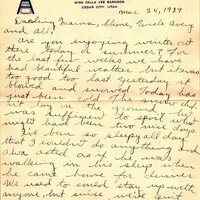 MISS ZELLA VEE BARNSON
OGDEN CITY, UTAH
Mar 25, 1939
Darling Mama, Clone, Uncle Avery
and All,
Are you enjoying winter out
there today or summer? For the
last few weeks we have
had beautiful weather but it was
too good too last. Yesterday it
blowed and snowed. Today has
just been cold. The wind
hit lay on the ground he
was sufficient to spoil what
might had been two nice days.
I've been so sleepy all day
that I wouldn't do anything and
also acted as if he was
walking in his sleep when
he came home for dinner.
We used to could stay up with
anyone but since we've quit